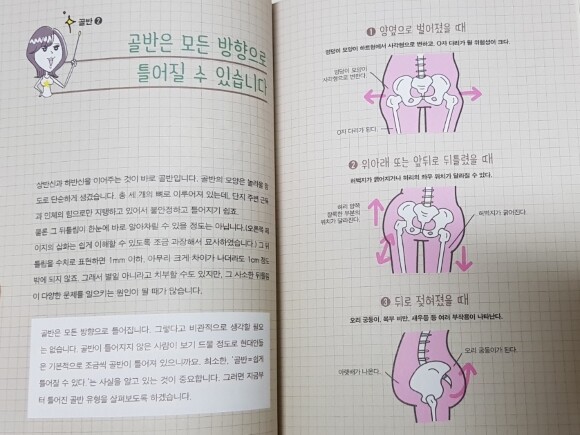 골반 ❷
골반은 모든 방향으로
틀어질 수 있습니다
상반신과 하반신을 이어주는 것이 바로 골반입니다. 골반의 모양은 놀라울 정
도로 단순하게 생겼습니다. 총 세 개의 뼈로 이루어져 있는데, 단지 주변 근육
과 인체의 힘으로만 지탱하고 있어서 불안정하고 틀어지기 쉽죠.
물론 그 뒤틀림이 한눈에 바로 알아차릴 수 있을 정도는 아닙니다.(오른쪽 페
이지의 삽화는 쉽게 이해할 수 있도록 조금 과장해서 묘사하였습니다.) 그 뒤
틀림을 수치로 표현하면 1mm 이하, 아무리 크게 차이가 나더라도 1cm 정도
밖에 되지 않죠. 그래서 별일 아니라고 치부할 수도 있지만, 그 사소한 뒤틀림
이 다양한 문제를 일으키는 원인이 될 때가 많습니다.
골반은 모든 방향으로 틀어집니다. 그렇다고 비관적으로 생각할 필요
는 없습니다. 골반이 틀어지지 않은 사람이 보기 드물 정도로 현대인들
은 기본적으로 조금씩 골반이 틀어져 있으니까요. 최소한, '골반=쉽게
틀어질 수 있다'는 사실을 알고 있는 것이 중요합니다. 그러면 지금부
터 틀어진 골반 유형을 살펴보도록 하겠습니다.
❶ 양옆으로 벌어졌을 때
엉덩이 모양이 하트형에서 사각형으로 변하고, O자 다리가 될 위험성이 크다.
엉덩이 모양이
사각형으로 변한다.
O자 다리가 된다.
❷ 위아래 또는 앞뒤로 뒤틀렸을 때
허벅지가 굵어지거나 허리의 좌우 위치가 달라질 수 있다.
허리 양쪽
잘록한 부분의
위치가 달라진다.
허벅지가 굵어진다.
❸ 뒤로 젖혀졌을 때
오리 궁둥이, 복부 비만, 새우등 등 여러 부작용이 나타난다.
오리 궁둥이가 된다.
아랫배가 나온다.